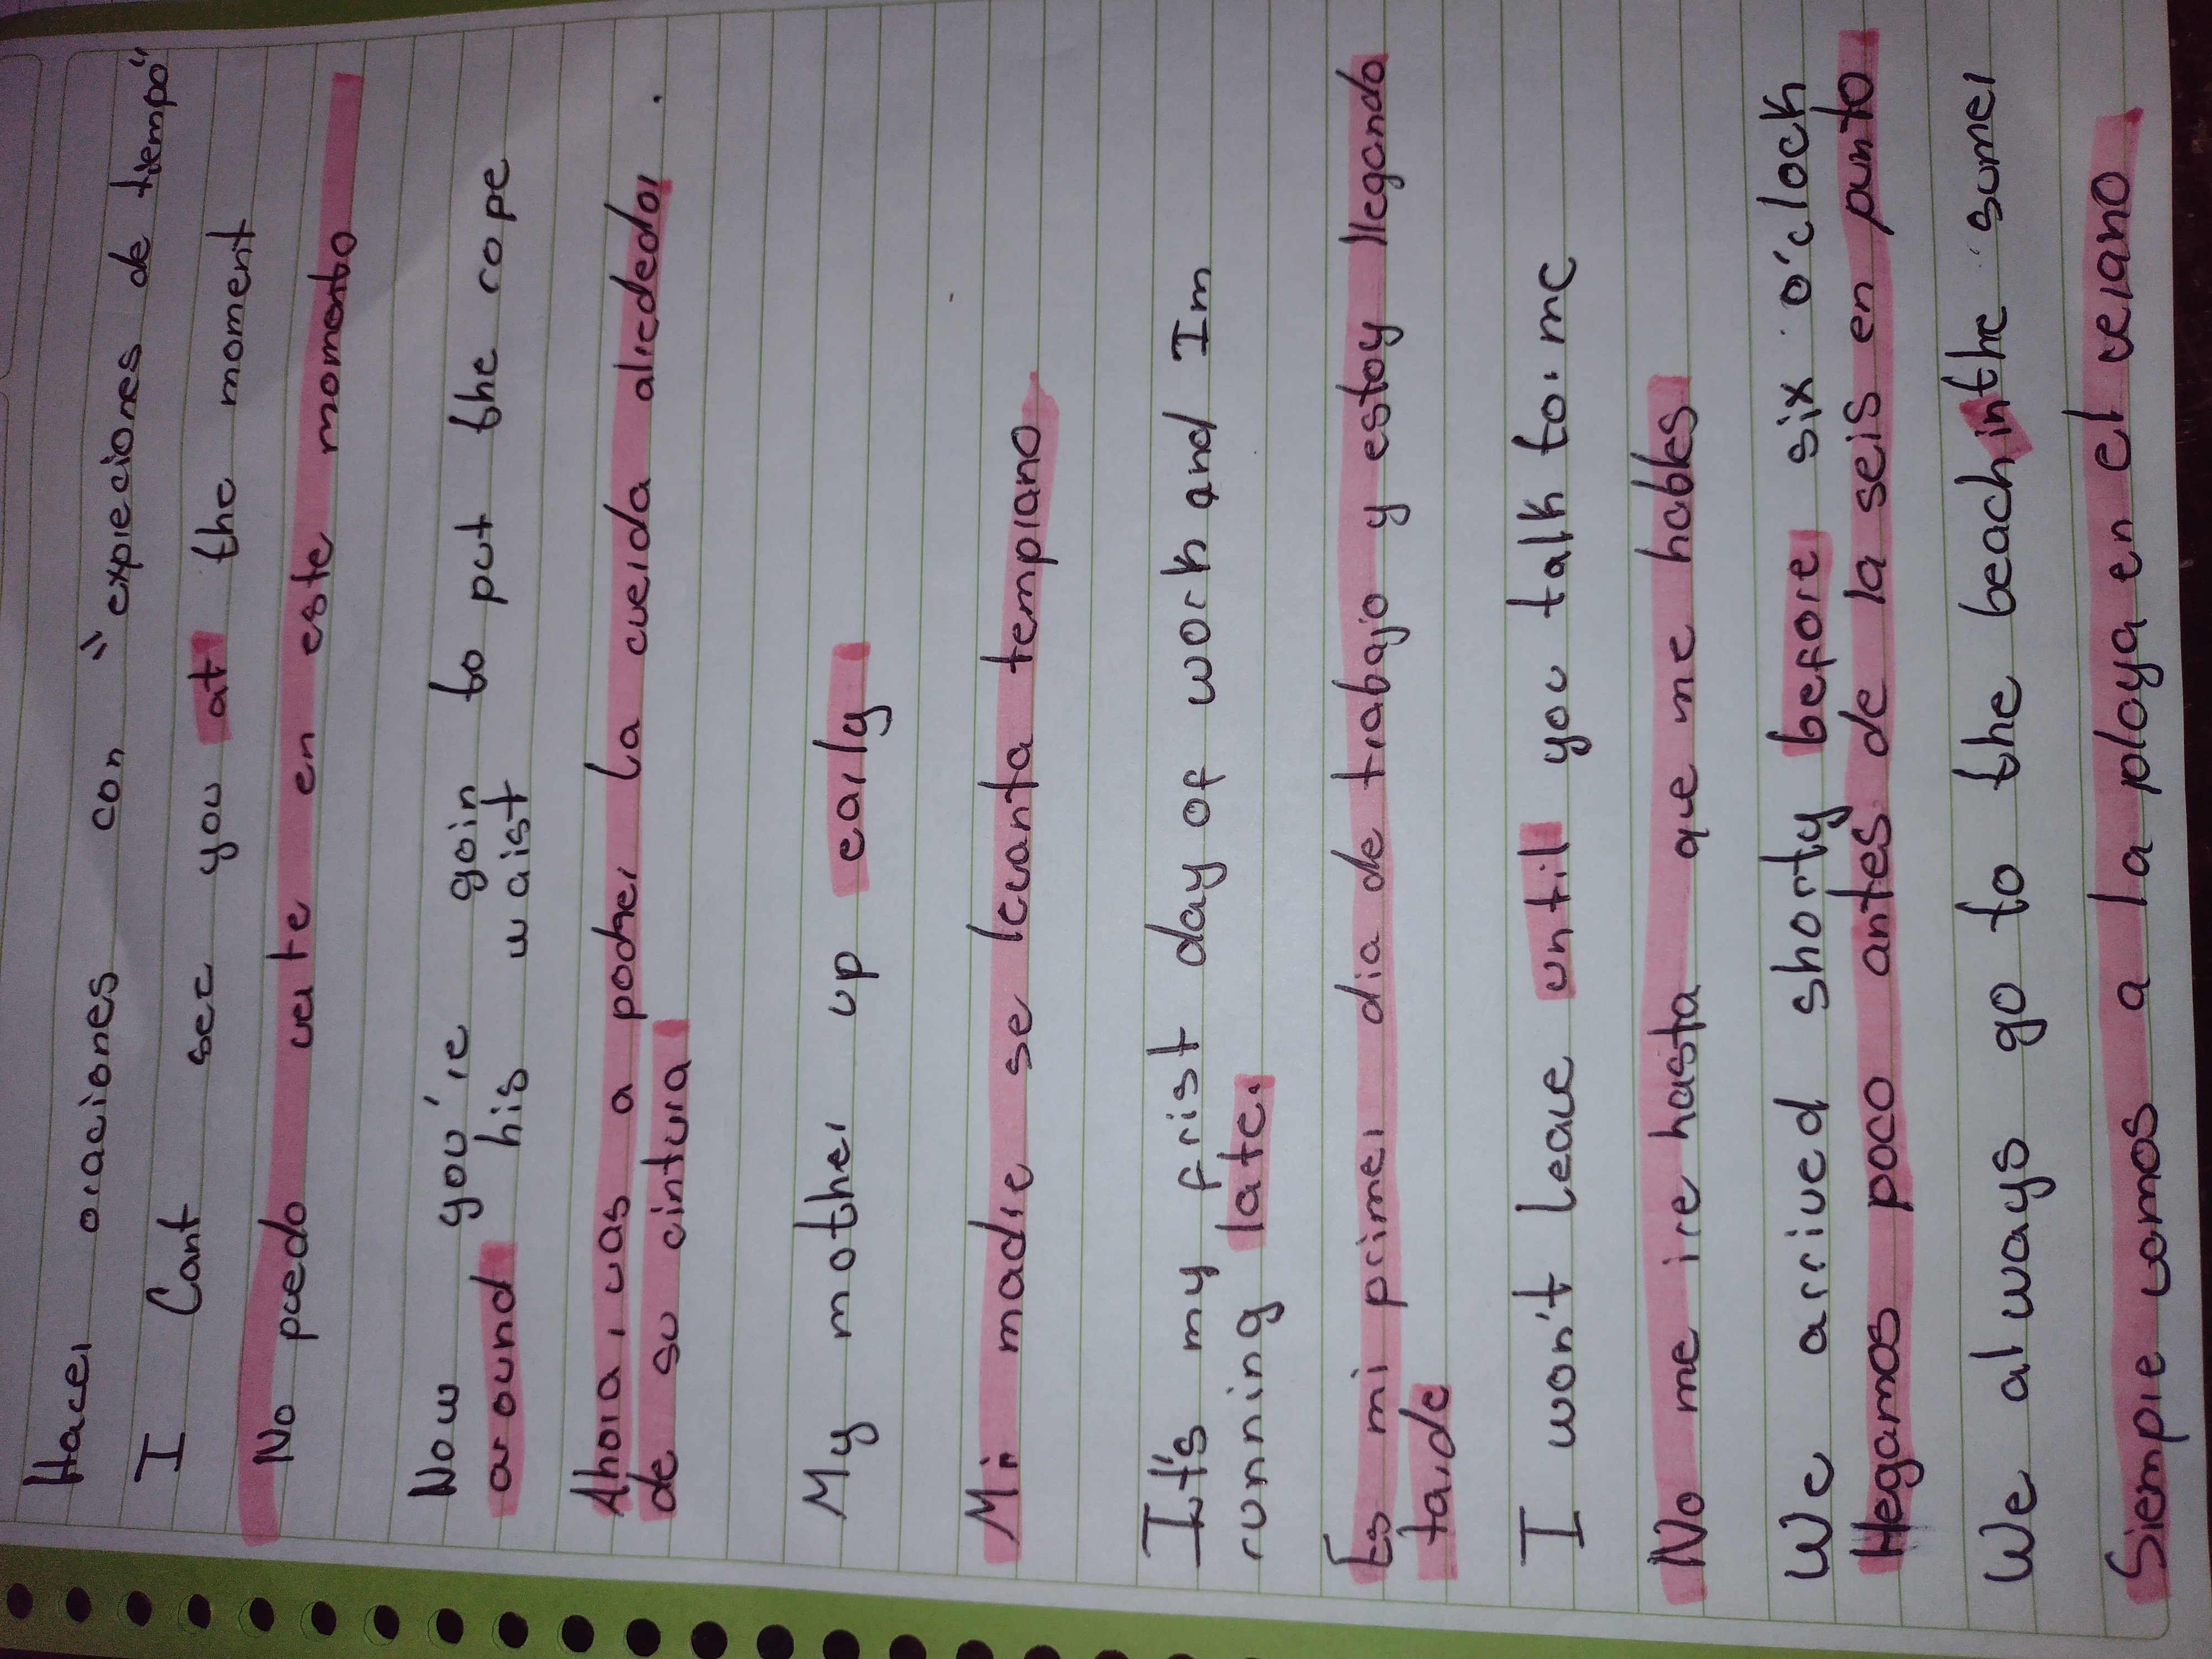 Hacer oraciones con "expreciones de tiempo"
I Cant see you at the moment
No puedo verte en este momento
Now you're goin to put the rope
around his waist
Ahora, vas a poder La cuerda alrededor.
de su cintura
My mother up early
Mi madre se levanta temprano
It's my frist day of work and Im
running late.
Es mi primer dia de trabajo y estoy llegando
tarde
I won't leave until you talk to.me
No me ire hasta que me hables
We arrived shorty before six o'clock
llegamos poco antes de la seis en punto
We always go to the beach in the sumer
Siempre vamos a la playa en el verano